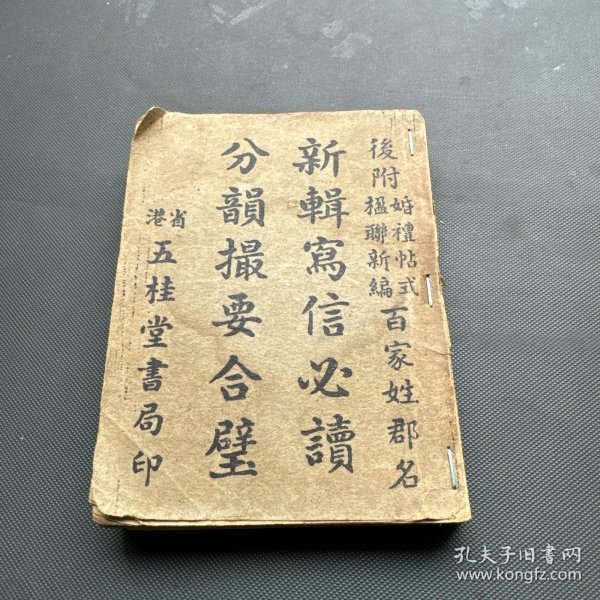 後附婚禮帖式楹聯新編百家姓郡名
新輯寫信必讀
分韻撮要合璧
省港五桂堂書局印
孔夫子旧书网
www.kongfz.com